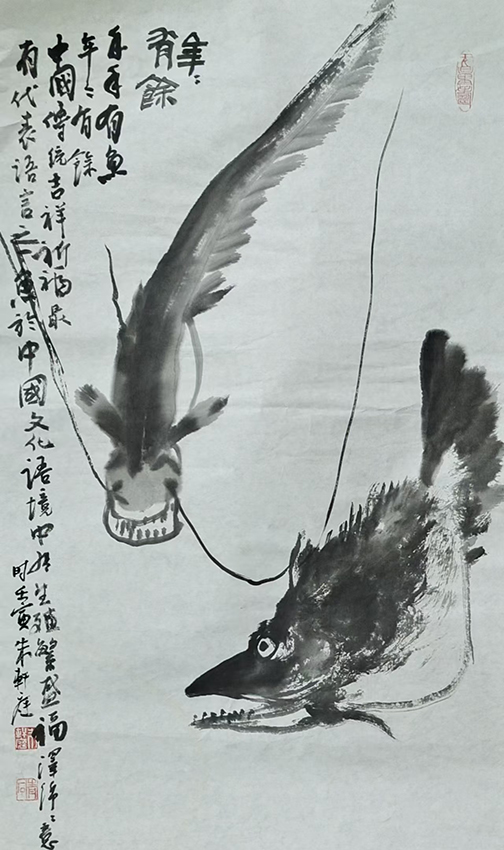 年〻
有餘
年年有魚
年〻有餘
中國傳統吉祥祈福最
有代表語言之一魚於中國文化語境中有生殖繁盛福澤綿〻意
時壬寅朱軒庭